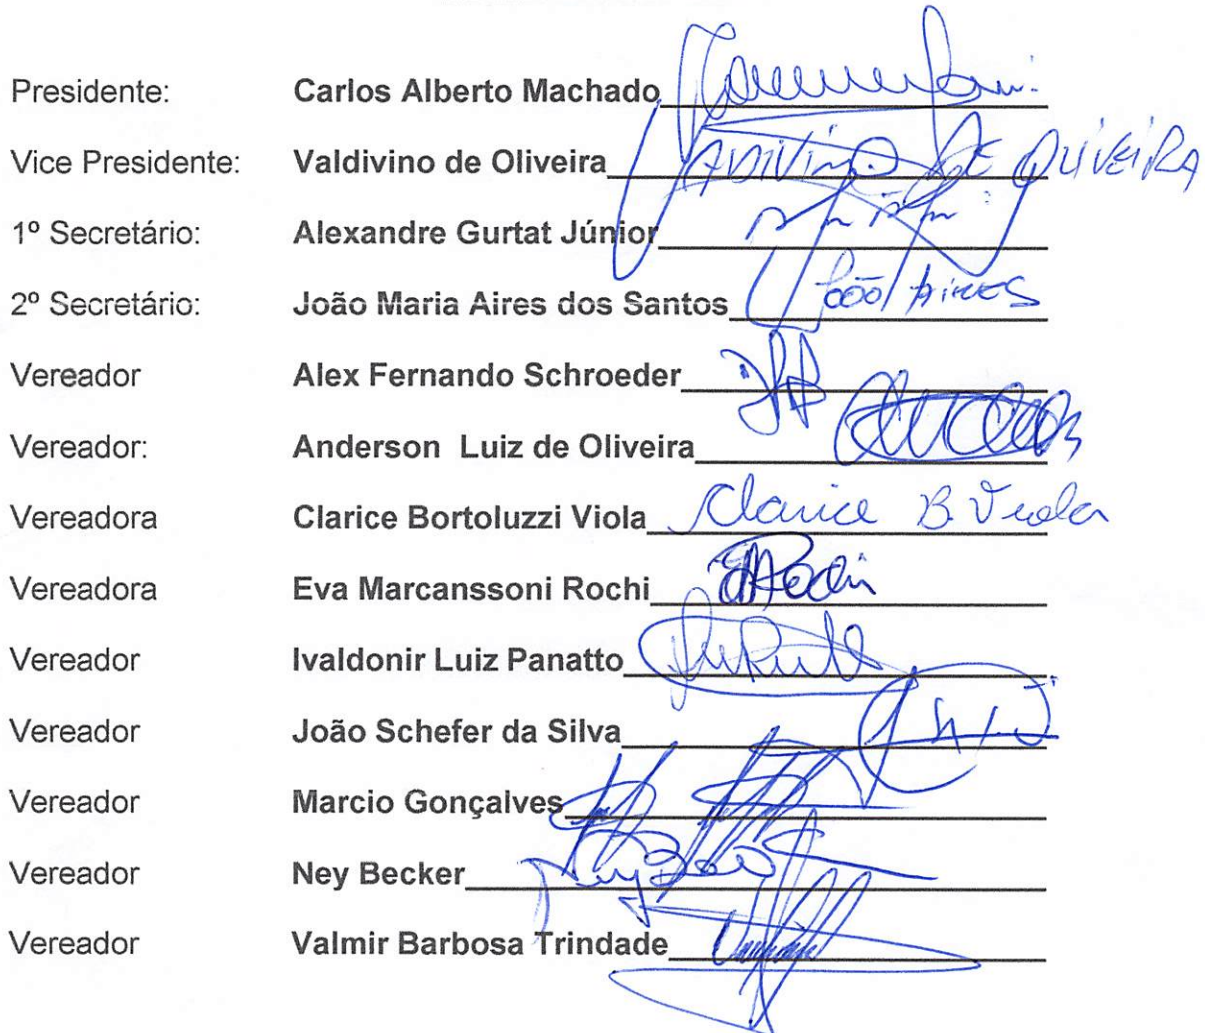 Presidente: Carlos Alberto Machado
Vice Presidente: Valdivino de Oliveira VADIVINO DE OLIVEIRA
1º Secretário: Alexandre Gurtat Júnior
2º Secretário: João Maria Aires dos Santos João Aires
Vereador Alex Fernando Schroeder
Vereador: Anderson Luiz de Oliveira
Vereadora Clarice Bortoluzzi Viola Clarice B. Viola
Vereadora Eva Marcanssoni Rochi
Vereador Ivaldonir Luiz Panatto
Vereador João Schefer da Silva
Vereador Marcio Gonçalves
Vereador Ney Becker
Vereador Valmir Barbosa Trindade